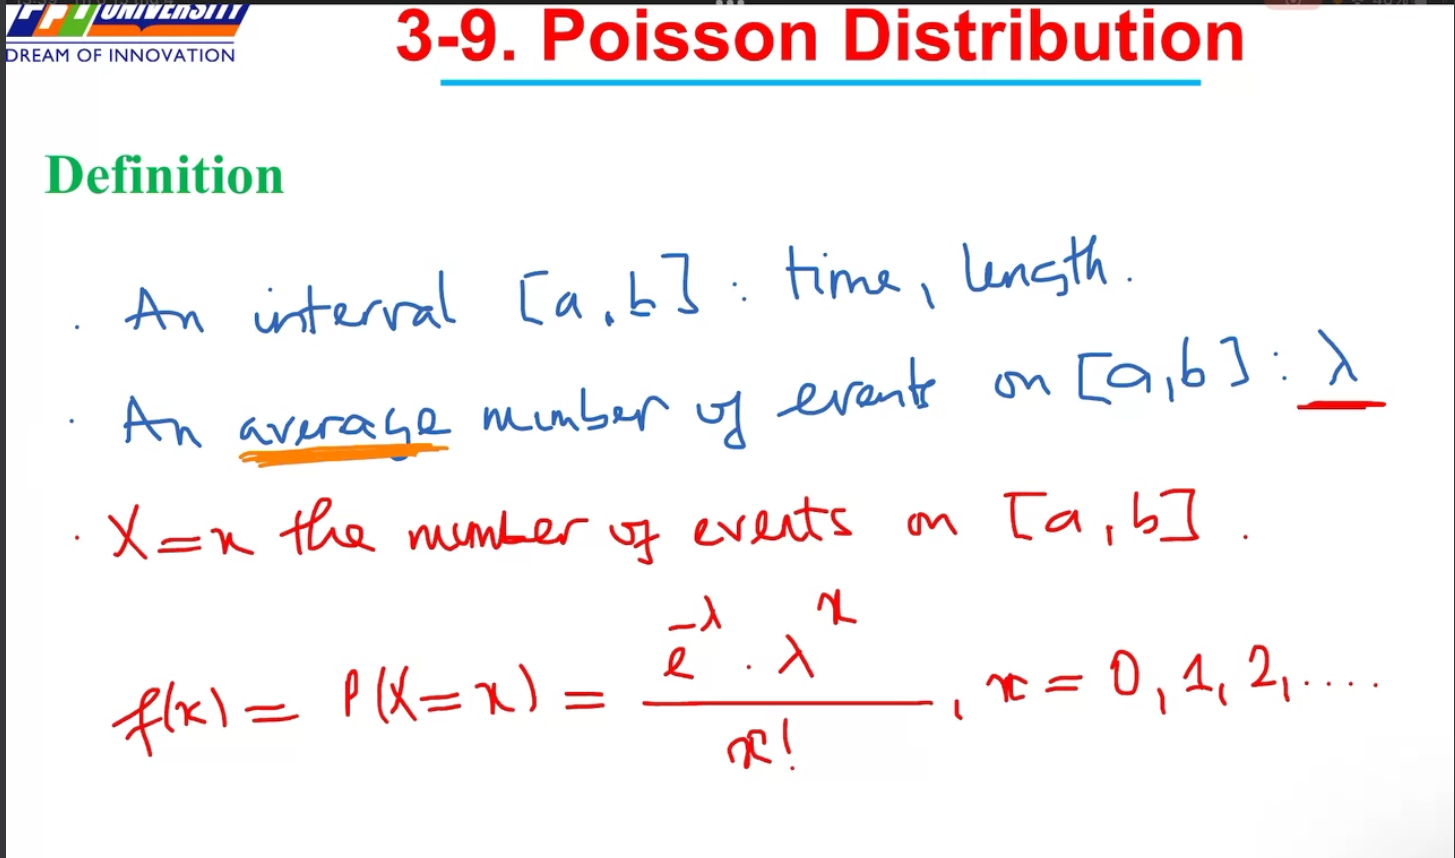 UNIVERSITY
DREAM OF INNOVATION
3-9. Poisson Distribution
Definition
. An interval [a, b] : time, length.
. An average number of events on [a, b] : λ
. X = x the number of events on [a, b] .
f(x) = P(X = x) = e^-λ . λ^x / x! , x = 0, 1, 2, ....